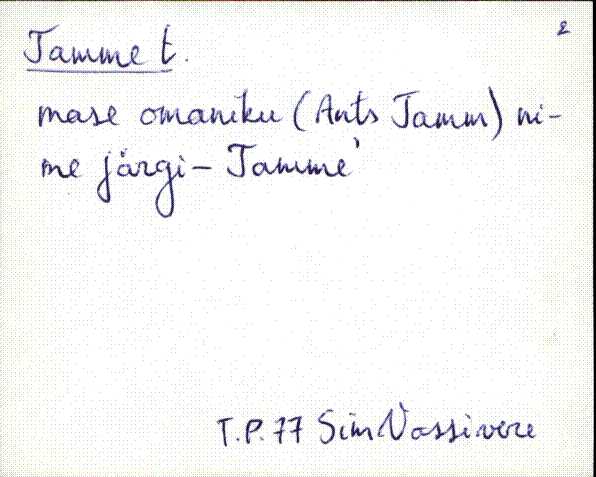 2
Tamme t.
mase omaniku (Ants Tamm) ni-
me järgi – Tamme'
T.P. 77 Sim Vassivere